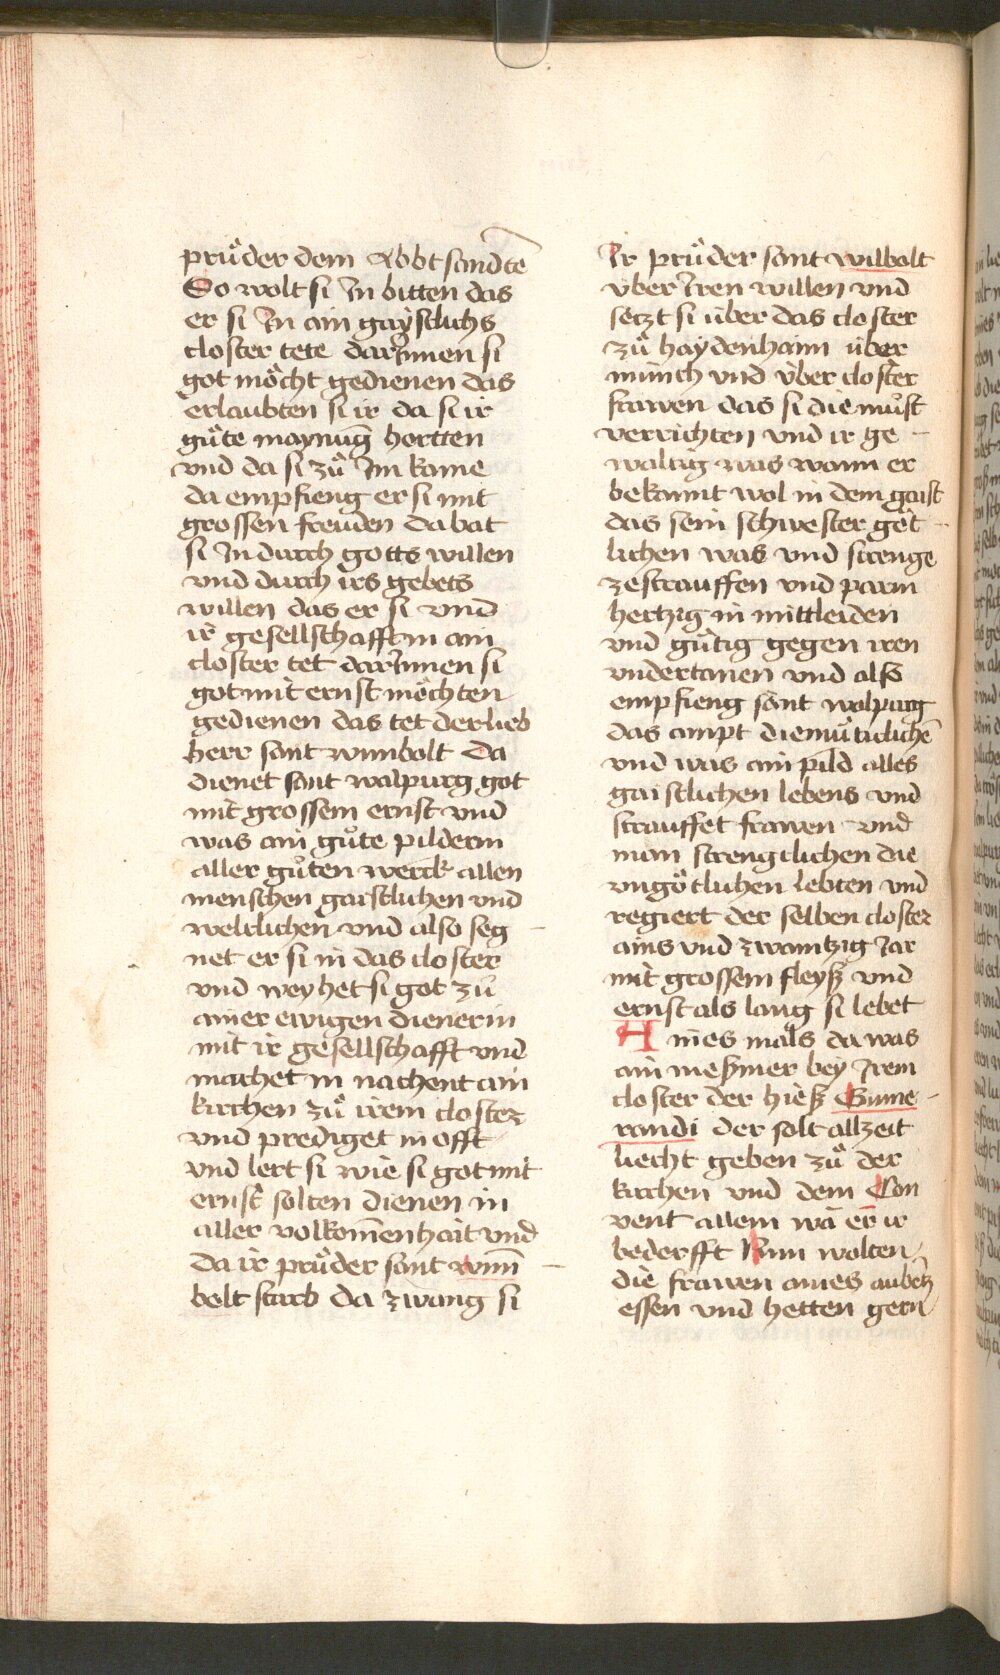 průder dem Abbt sandtē
So wolt si In bitten das
er si In ain gaÿstlichs
closter tete darInnen si
got möcht gedienen das
erlaubten si ir da si ir
gůte maynuḡ hortten
vnd da si zů Im kame
da empfieng er si mit
grossen freuden da bat
si In durch gotts willen
vnd durch irs gebets
willen das er si vnd
ir gesellschafft in ain
closter tet darInnen si
got mit ernst möchten
gedienen das tet der lieb
herr sant wunibolt Da
dienet sant walpurg got
mit grossem ernst vnd
was ain gůte pilderin
aller gůten werck allen
menschen gaistlichen vnd
weltlichen vnd also seg -
net er si in das closter
vnd weyhet si got zů
ainer ewigen dienerin
mit ir gesellschafft vnd
machet in nachent ain
kirchen zů irem closter
vnd prediget in offt
vnd lert si wie si got mit
ernst solten dienen in
aller volkom̄enhait vnd
Da ir průder sant wuni -
bolt starb Da zwang si
Ir průder sant wilbolt
über Iren willen vnd
setzt si über das closter
zů haydenhaim über
münch vnd über closter
frawen das si die můst
verrichten vnd ir ge -
waltig was wann er
bekannt wol in dem gaist
das sein schwester göt -
lichen was vnd strenge
ze strauffen vnd parm
hertzig in mittleiden
vnd gůtig gegen iren
vndertanen vnd also
empfieng sant walpurg
das ampt diemůticlichē
vnd was ain pild alles
gaistlichen lebens vnd
strauffet frawen vnd
man strengclichen die
vngötlichen lebten vnd
regiert der selben closter
ains vnd zwaintzig Jar
mit grossem fleyß vnd
ernst als lang si lebet
Aines mals da was
ain meßner bey Irem
closter der hieß Gume -
randi der solt allzeit
liecht geben zů der
kirchen vnd dem Con
vent allem wa er ir
bederfft Nun wolten
die frawen aines aubetz
essen vnd hetten gern